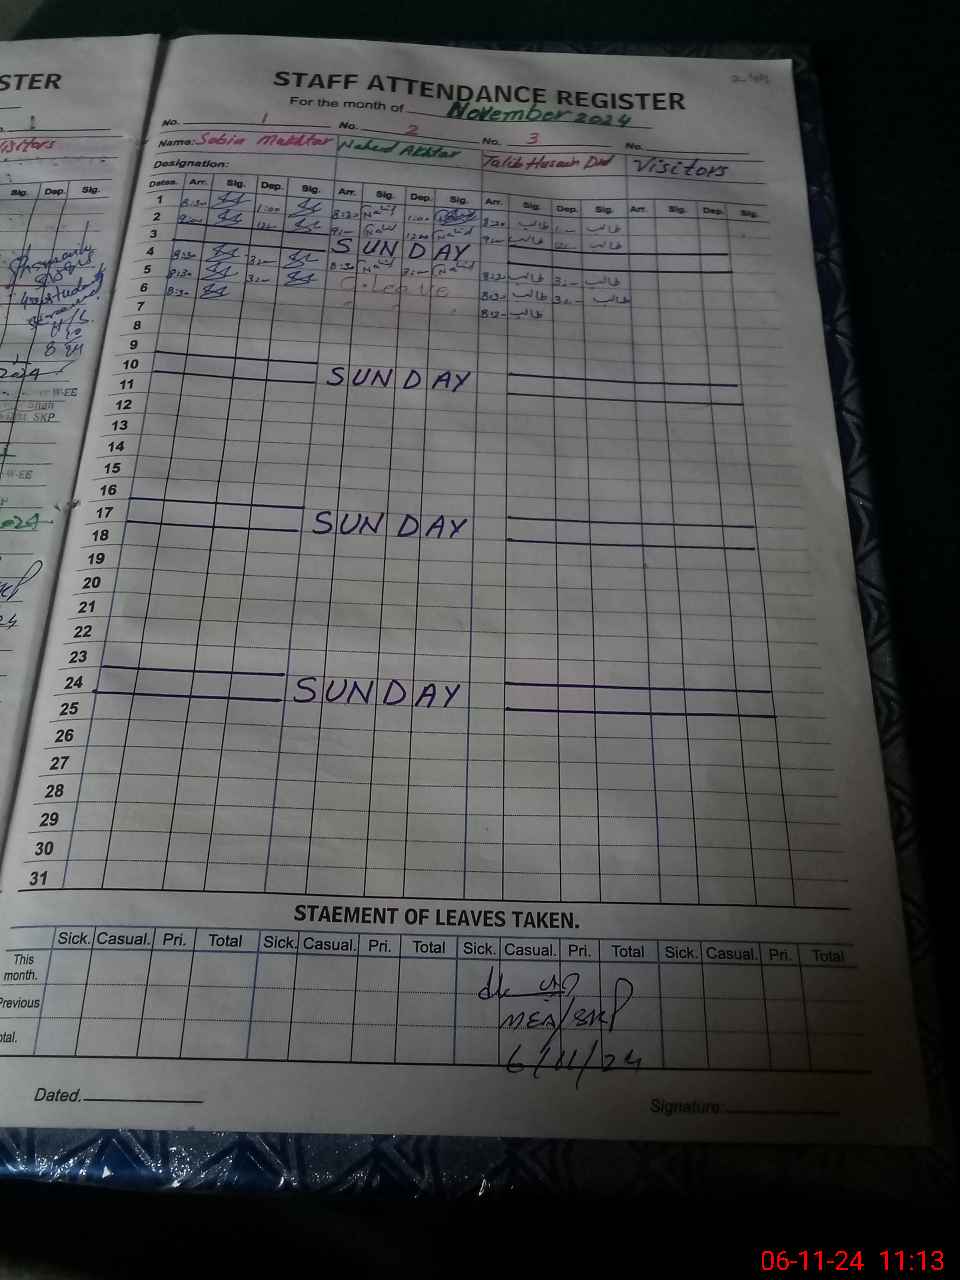 STER
STAFF ATTENDANCE REGISTER
For the month of November 2024
No. 1 No. 2 No. 3 No.
Visitors
Name: Sabia Mukhtar Naheed Akhtar Talib Hussain Visitors
Designation:
Sig. Dep. Sig.
Dates. Arr. Sig. Dep. Sig. Arr. Sig. Dep. Sig. Arr. Sig. Dep. Sig. Arr. Sig. Dep. Sig.
1 8:30 1:00 8:30 1:00 8:30 طالب 1:- طالب
2 9:00 12:- 9:- 12:00 9:- طالب 12:- طالب
3 SUNDAY
4 8:30 3:- 8:30 3:- 8:30 طالب 3:- طالب
5 8:30 3:- C-leave 8:30 طالب 3:- طالب
6 8:30 8:30 طالب
7
8
9
10 SUNDAY
11
12
13
14
15
16
17 SUNDAY
18
19
20
21
22
23
24 SUNDAY
25
26
27
28
29
30
31
W-EE
SKP
W-EE
STAEMENT OF LEAVES TAKEN.
Sick. Casual. Pri. Total Sick. Casual. Pri. Total Sick. Casual. Pri. Total Sick. Casual. Pri. Total
This month.
Previous
otal.
MEA/SKP
6/11/24
Dated.
Signature:
06-11-24 11:13